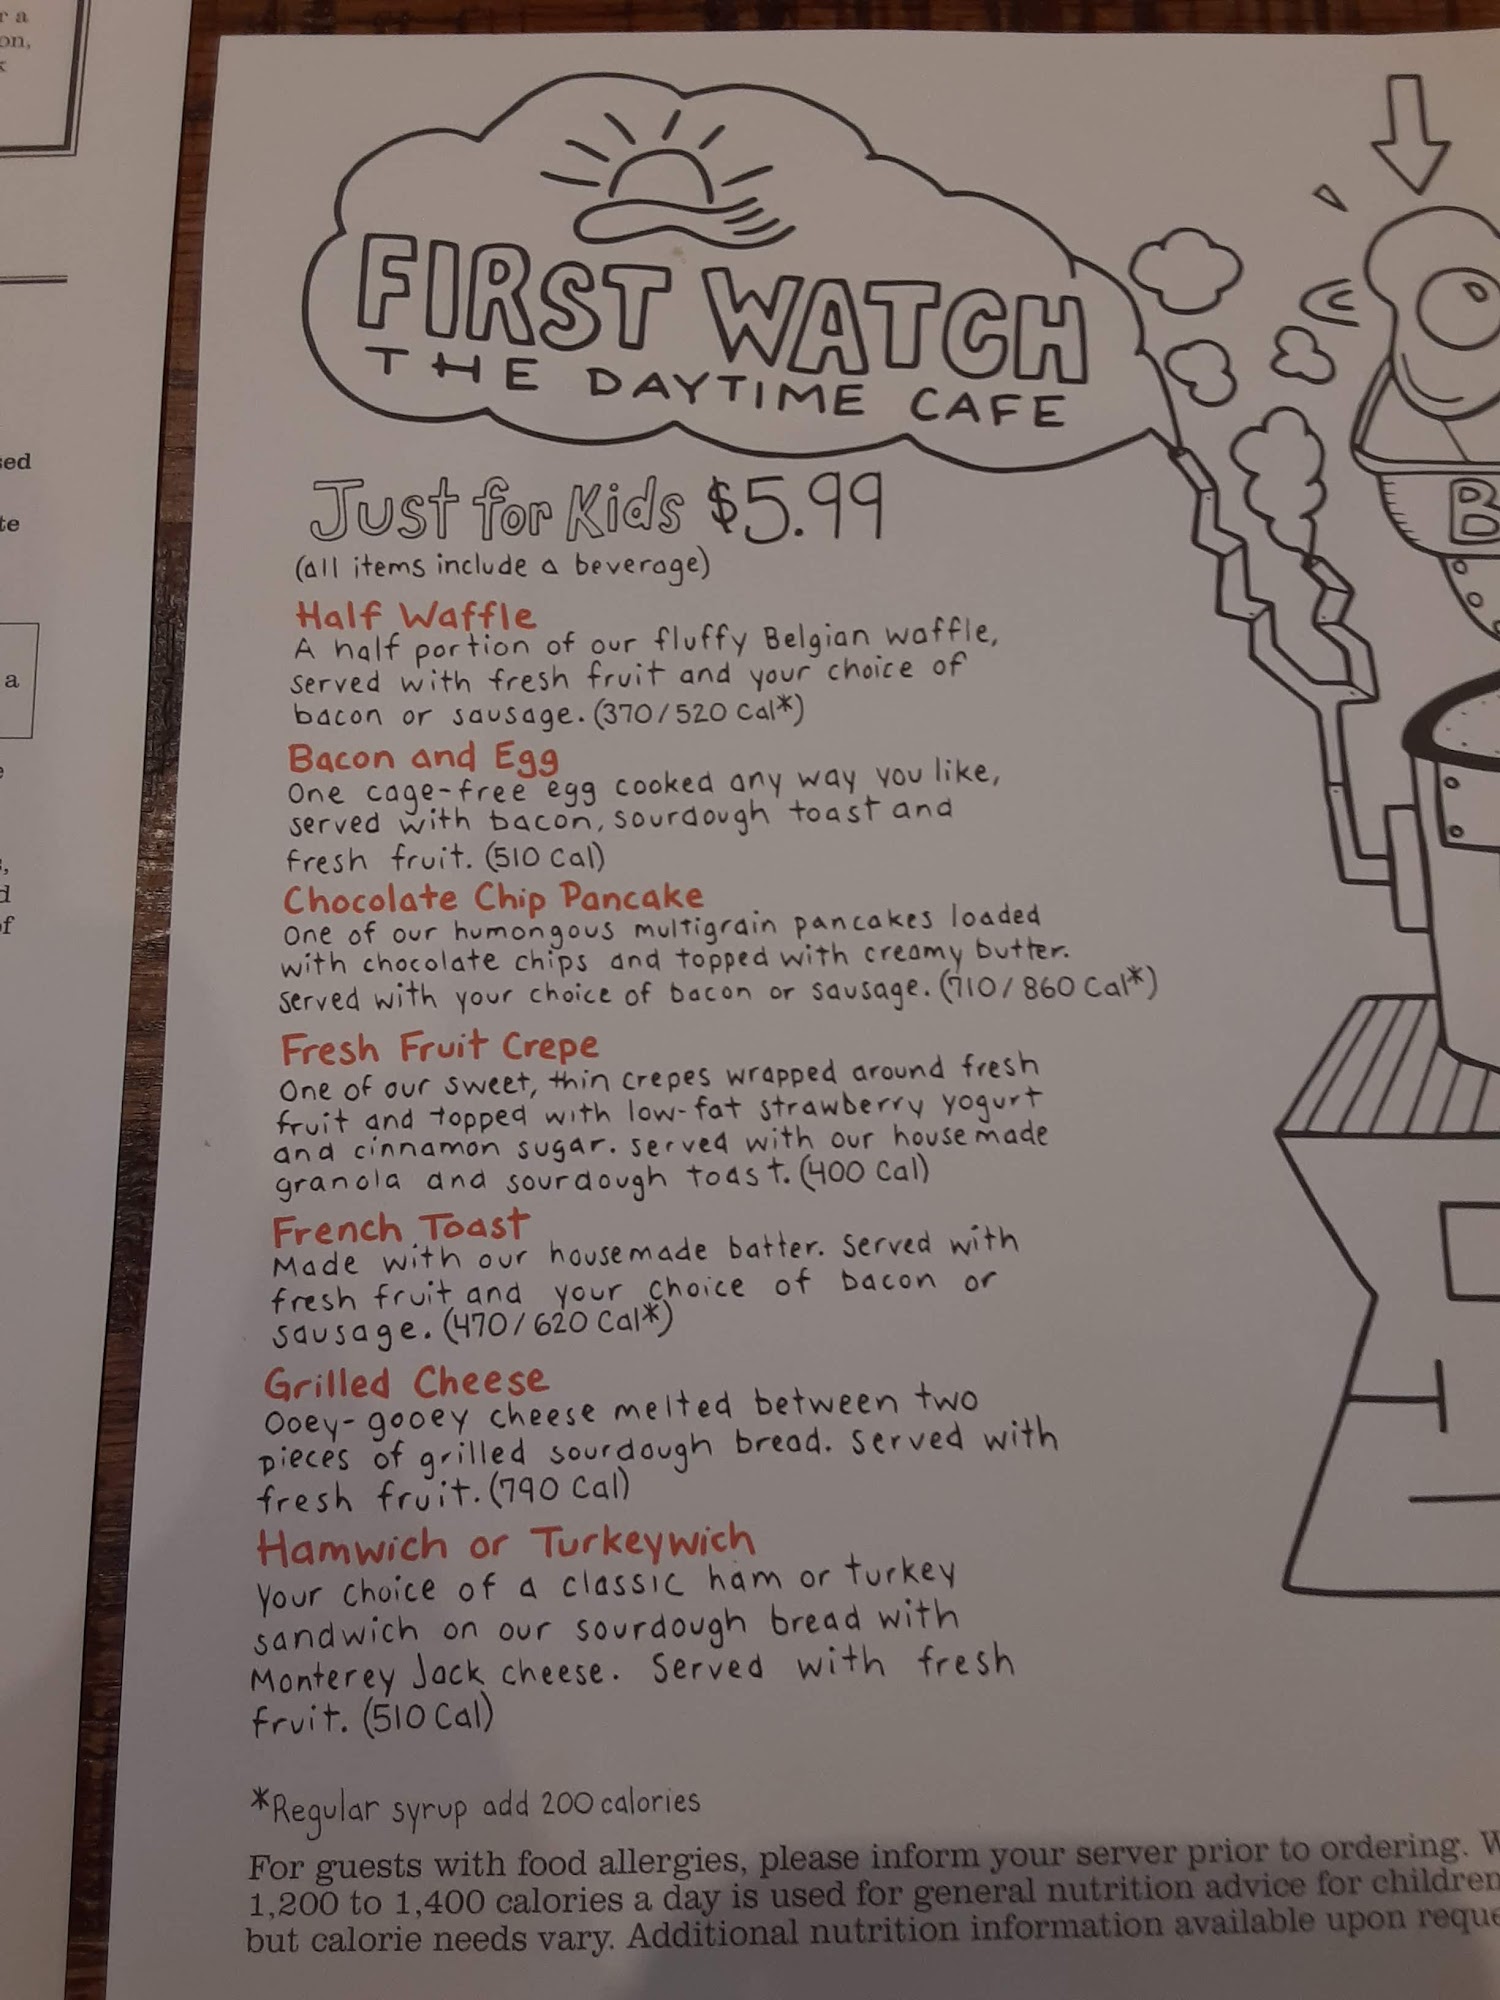 r a
on,
sed
te
a
of
FIRST WATCH
THE DAYTIME CAFE
Just for Kids $5.99
(all items include a beverage)
Half Waffle
A half portion of our fluffy Belgian waffle,
served with fresh fruit and your choice of
bacon or sausage. (370/520 Cal*)
Bacon and Egg
One cage-free egg cooked any way you like,
served with bacon, sourdough toast and
fresh fruit. (510 Cal)
Chocolate Chip Pancake
One of our humongous multigrain pancakes loaded
with chocolate chips and topped with creamy butter.
Served with your choice of bacon or sausage. (710/860 Cal*)
Fresh Fruit Crepe
One of our sweet, thin crepes wrapped around fresh
fruit and topped with low-fat strawberry yogurt
and cinnamon sugar. Served with our housemade
granola and sourdough toast. (400 Cal)
French Toast
Made with our housemade batter. Served with
fresh fruit and your choice of bacon or
sausage. (470/620 Cal*)
Grilled Cheese
Ooey-gooey cheese melted between two
pieces of grilled sourdough bread. Served with
fresh fruit. (790 Cal)
Hamwich or Turkeywich
Your choice of a classic ham or turkey
sandwich on our sourdough bread with
Monterey Jack cheese. Served with fresh
fruit. (510 Cal)
*Regular syrup add 200 calories
For guests with food allergies, please inform your server prior to ordering. W
1,200 to 1,400 calories a day is used for general nutrition advice for children
but calorie needs vary. Additional nutrition information available upon reque
B